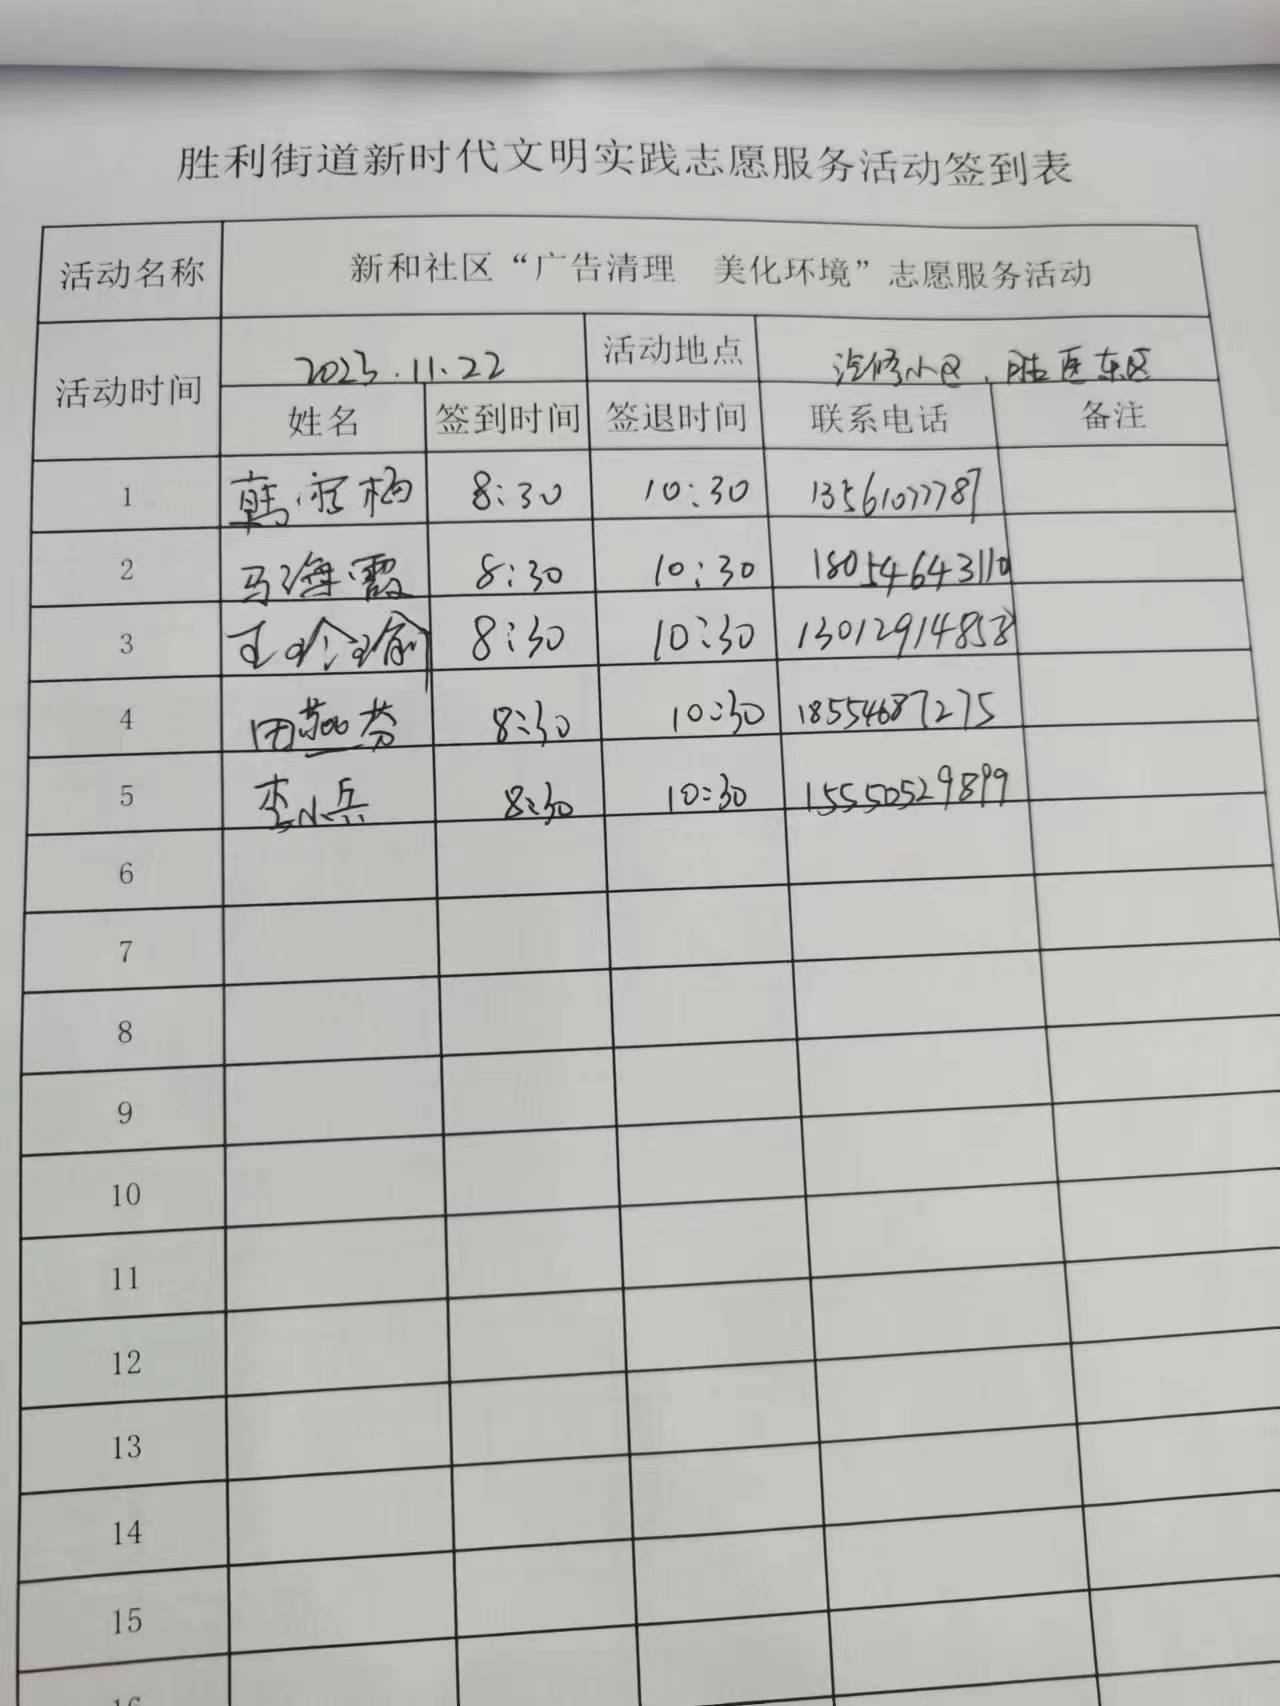 胜利街道新时代文明实践志愿服务活动签到表
活动名称 新和社区“广告清理 美化环境”志愿服务活动
活动时间 2023.11.22 活动地点 汽修小区、胜医东区
姓名 签到时间 签退时间 联系电话 备注
1 韩雪梅 8:30 10:30 13561077787
2 马海霞 8:30 10:30 18054643110
3 王玲瑜 8:30 10:30 13012914858
4 田燕芬 8:30 10:30 18554687275
5 李小兵 8:30 10:30 15550529899
6
7
8
9
10
11
12
13
14
15
16